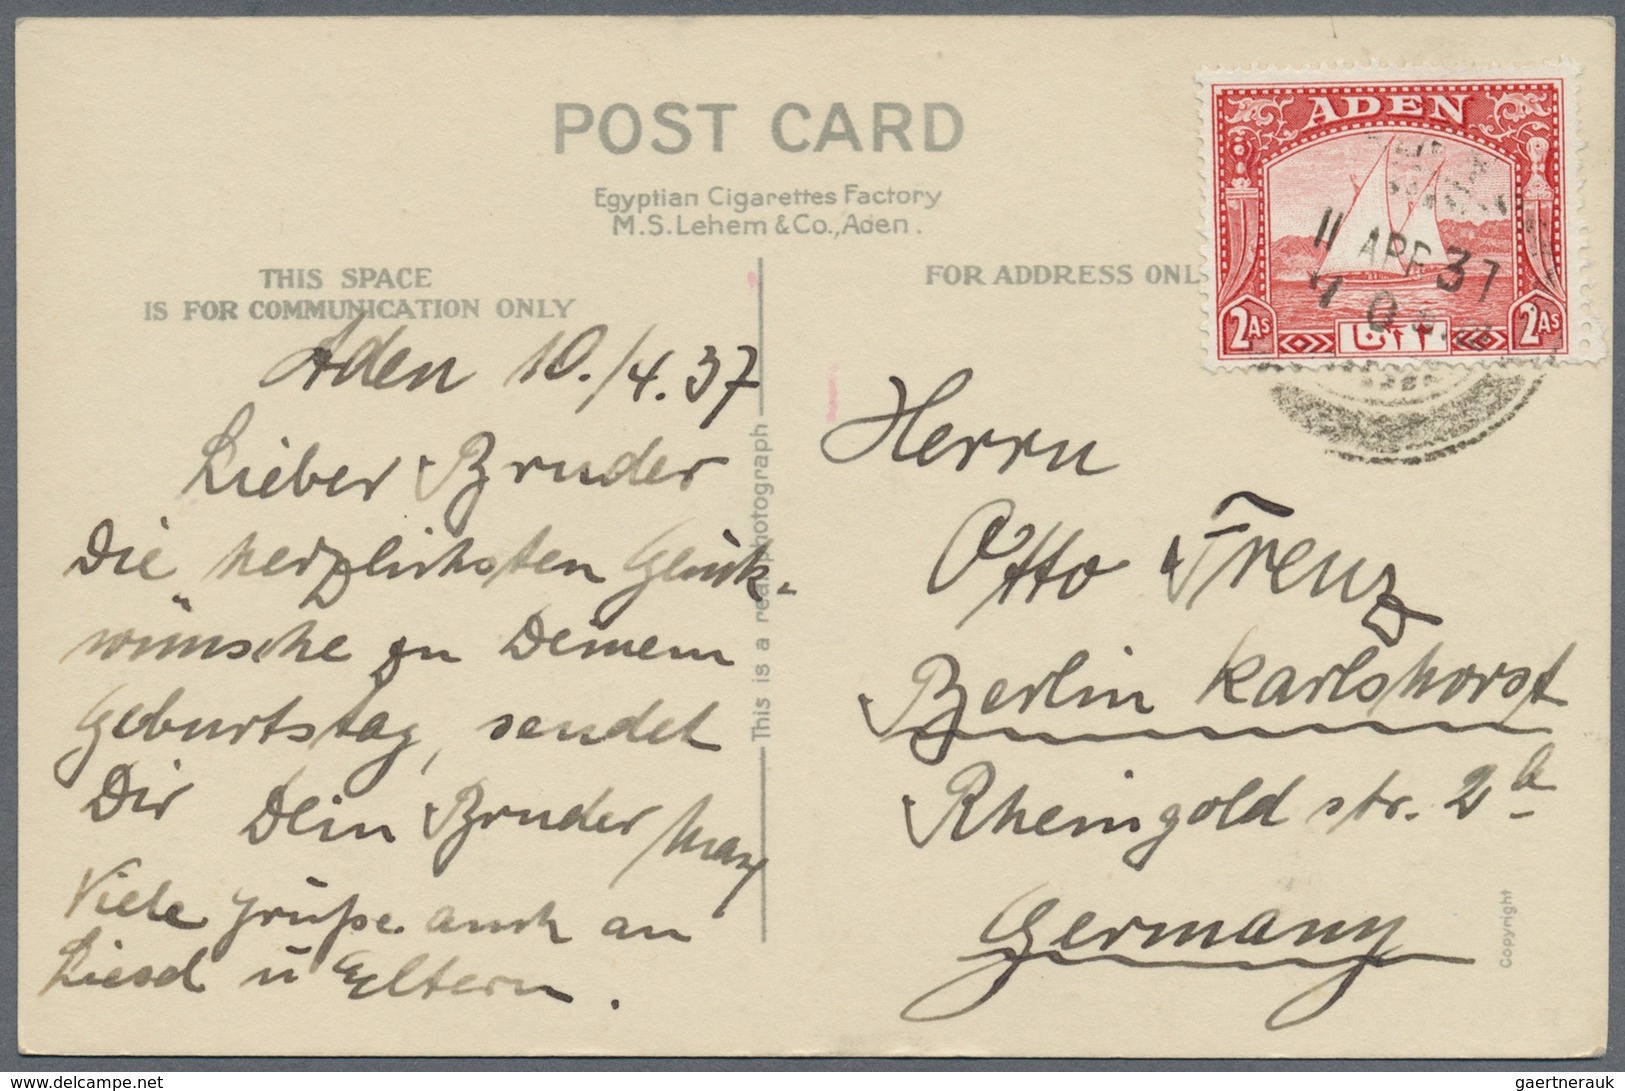 POST CARD
Egyptian Cigarettes Factory
M.S. Lehem & Co., Aden.
THIS SPACE
IS FOR COMMUNICATION ONLY
FOR ADDRESS ONL
ADEN
2As 2As
11 APR 37
Aden 10./4.37
Lieber Bruder
Die herzlichsten Glück-
wünsche zu Deinem
Geburtstag, sendet
Dir Dein Bruder Max
Viele Grüße auch an
Liesel u Eltern.
This is a real photograph
Herrn
Otto Frenz
Berlin Karlshorst
Rheingold str. 2a
Germany
Copyright
www.delcampe.net
gaertnerauk